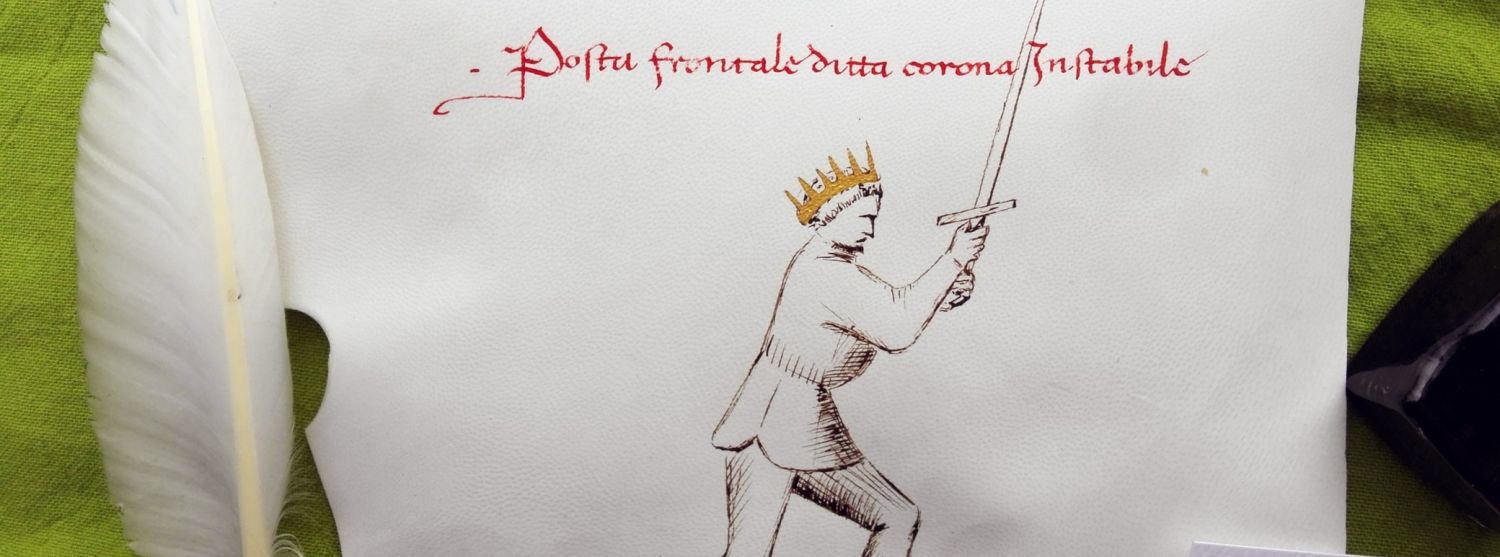 Posta frontale ditta corona Instabile